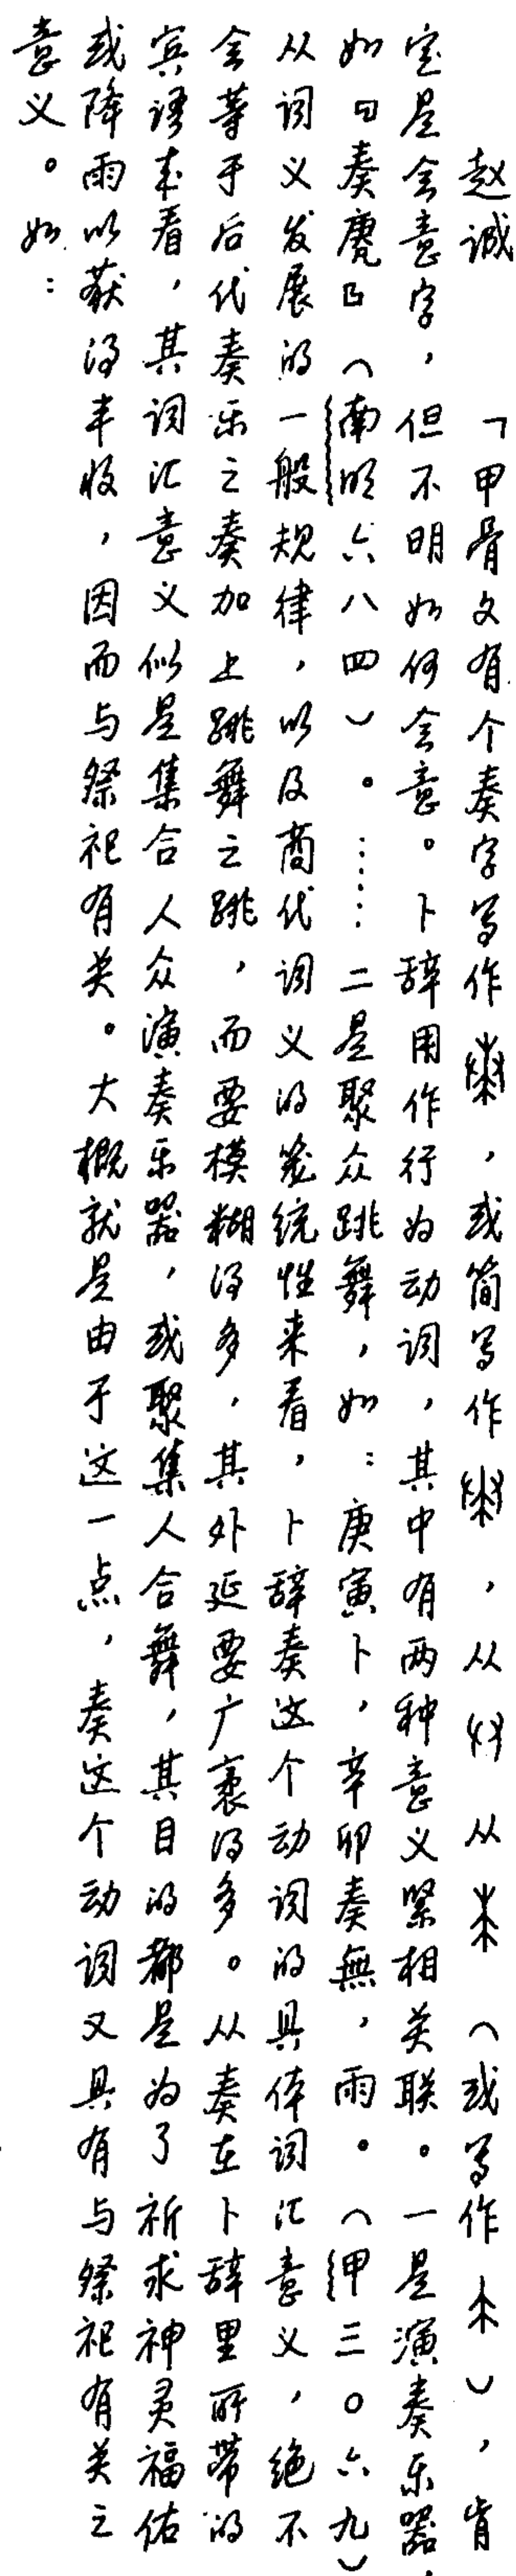 赵诚　「甲骨文有个奏字写作，或简写作，从从（或写作），肯
定是会意字，但不明如何会意。卜辞用作行为动词，其中有两种意义紧相关联。一是演奏乐器，
如『奏庸』（南明六八四）。……二是聚众跳舞，如：庚寅卜，辛卯奏無，雨。（甲三〇六九）
从词义发展的一般规律，以及商代词义的笼统性来看，卜辞奏这个动词的具体词汇意义，绝不
会等于后代奏乐之奏加上跳舞之跳，而要模糊得多，其外延要广袤得多。从奏在卜辞里所带的
宾语来看，其词汇意义似是集合人众演奏乐器，或聚集人合舞，其目的都是为了祈求神灵福佑
或降雨以获得丰收，因而与祭祀有关。大概就是由于这一点，奏这个动词又具有与祭祀有关之
意义。如：